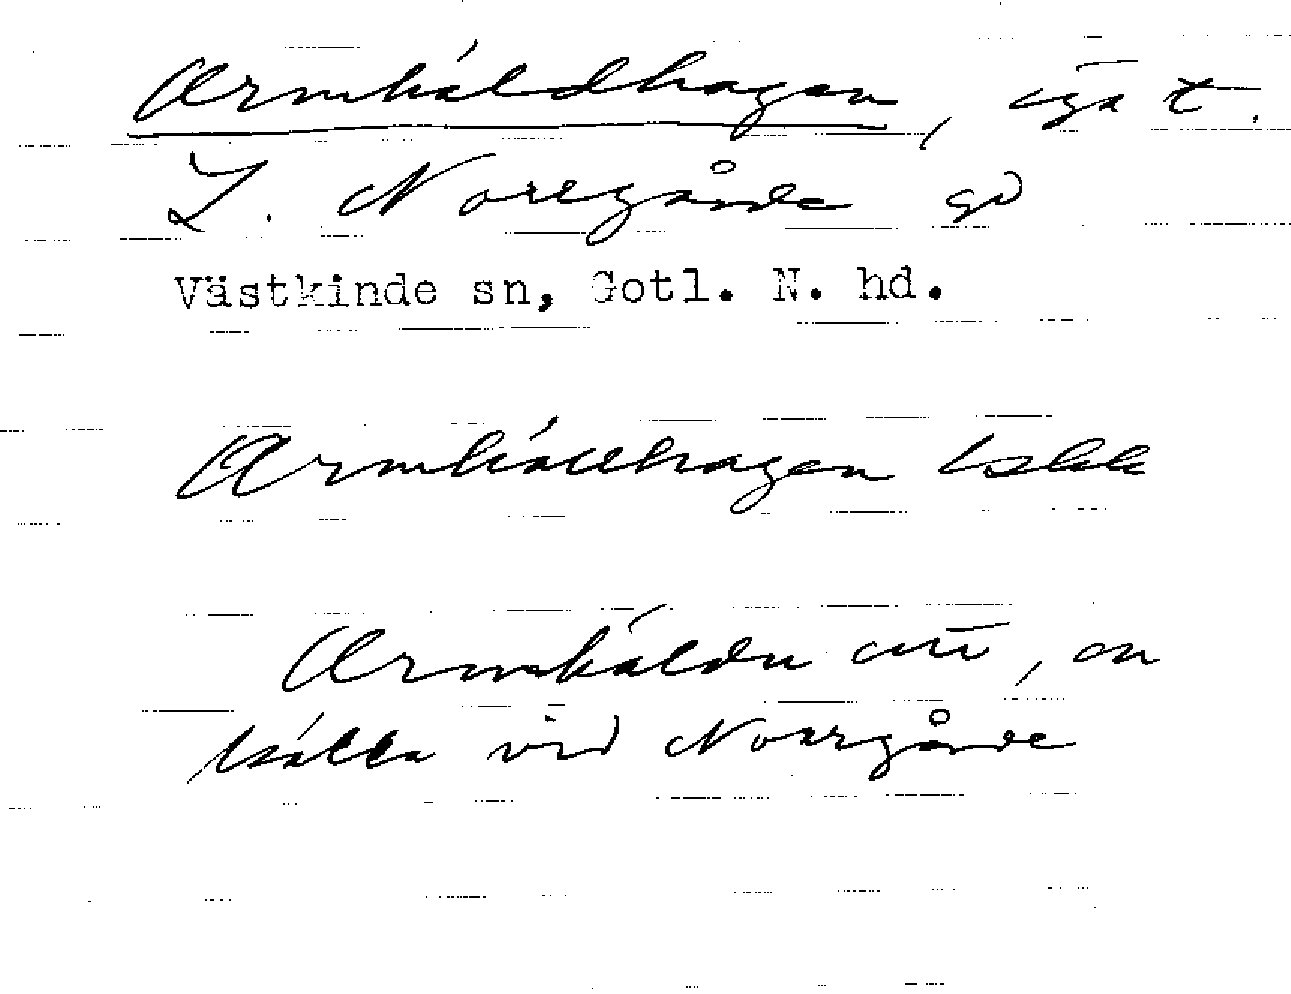 Armkäldhagen, äga t.
L. Norrgårde gd
Västkinde sn, Gotl. N. hd.
Armkällhagen Lskk
Armkäldu
källa vid Norrgårde